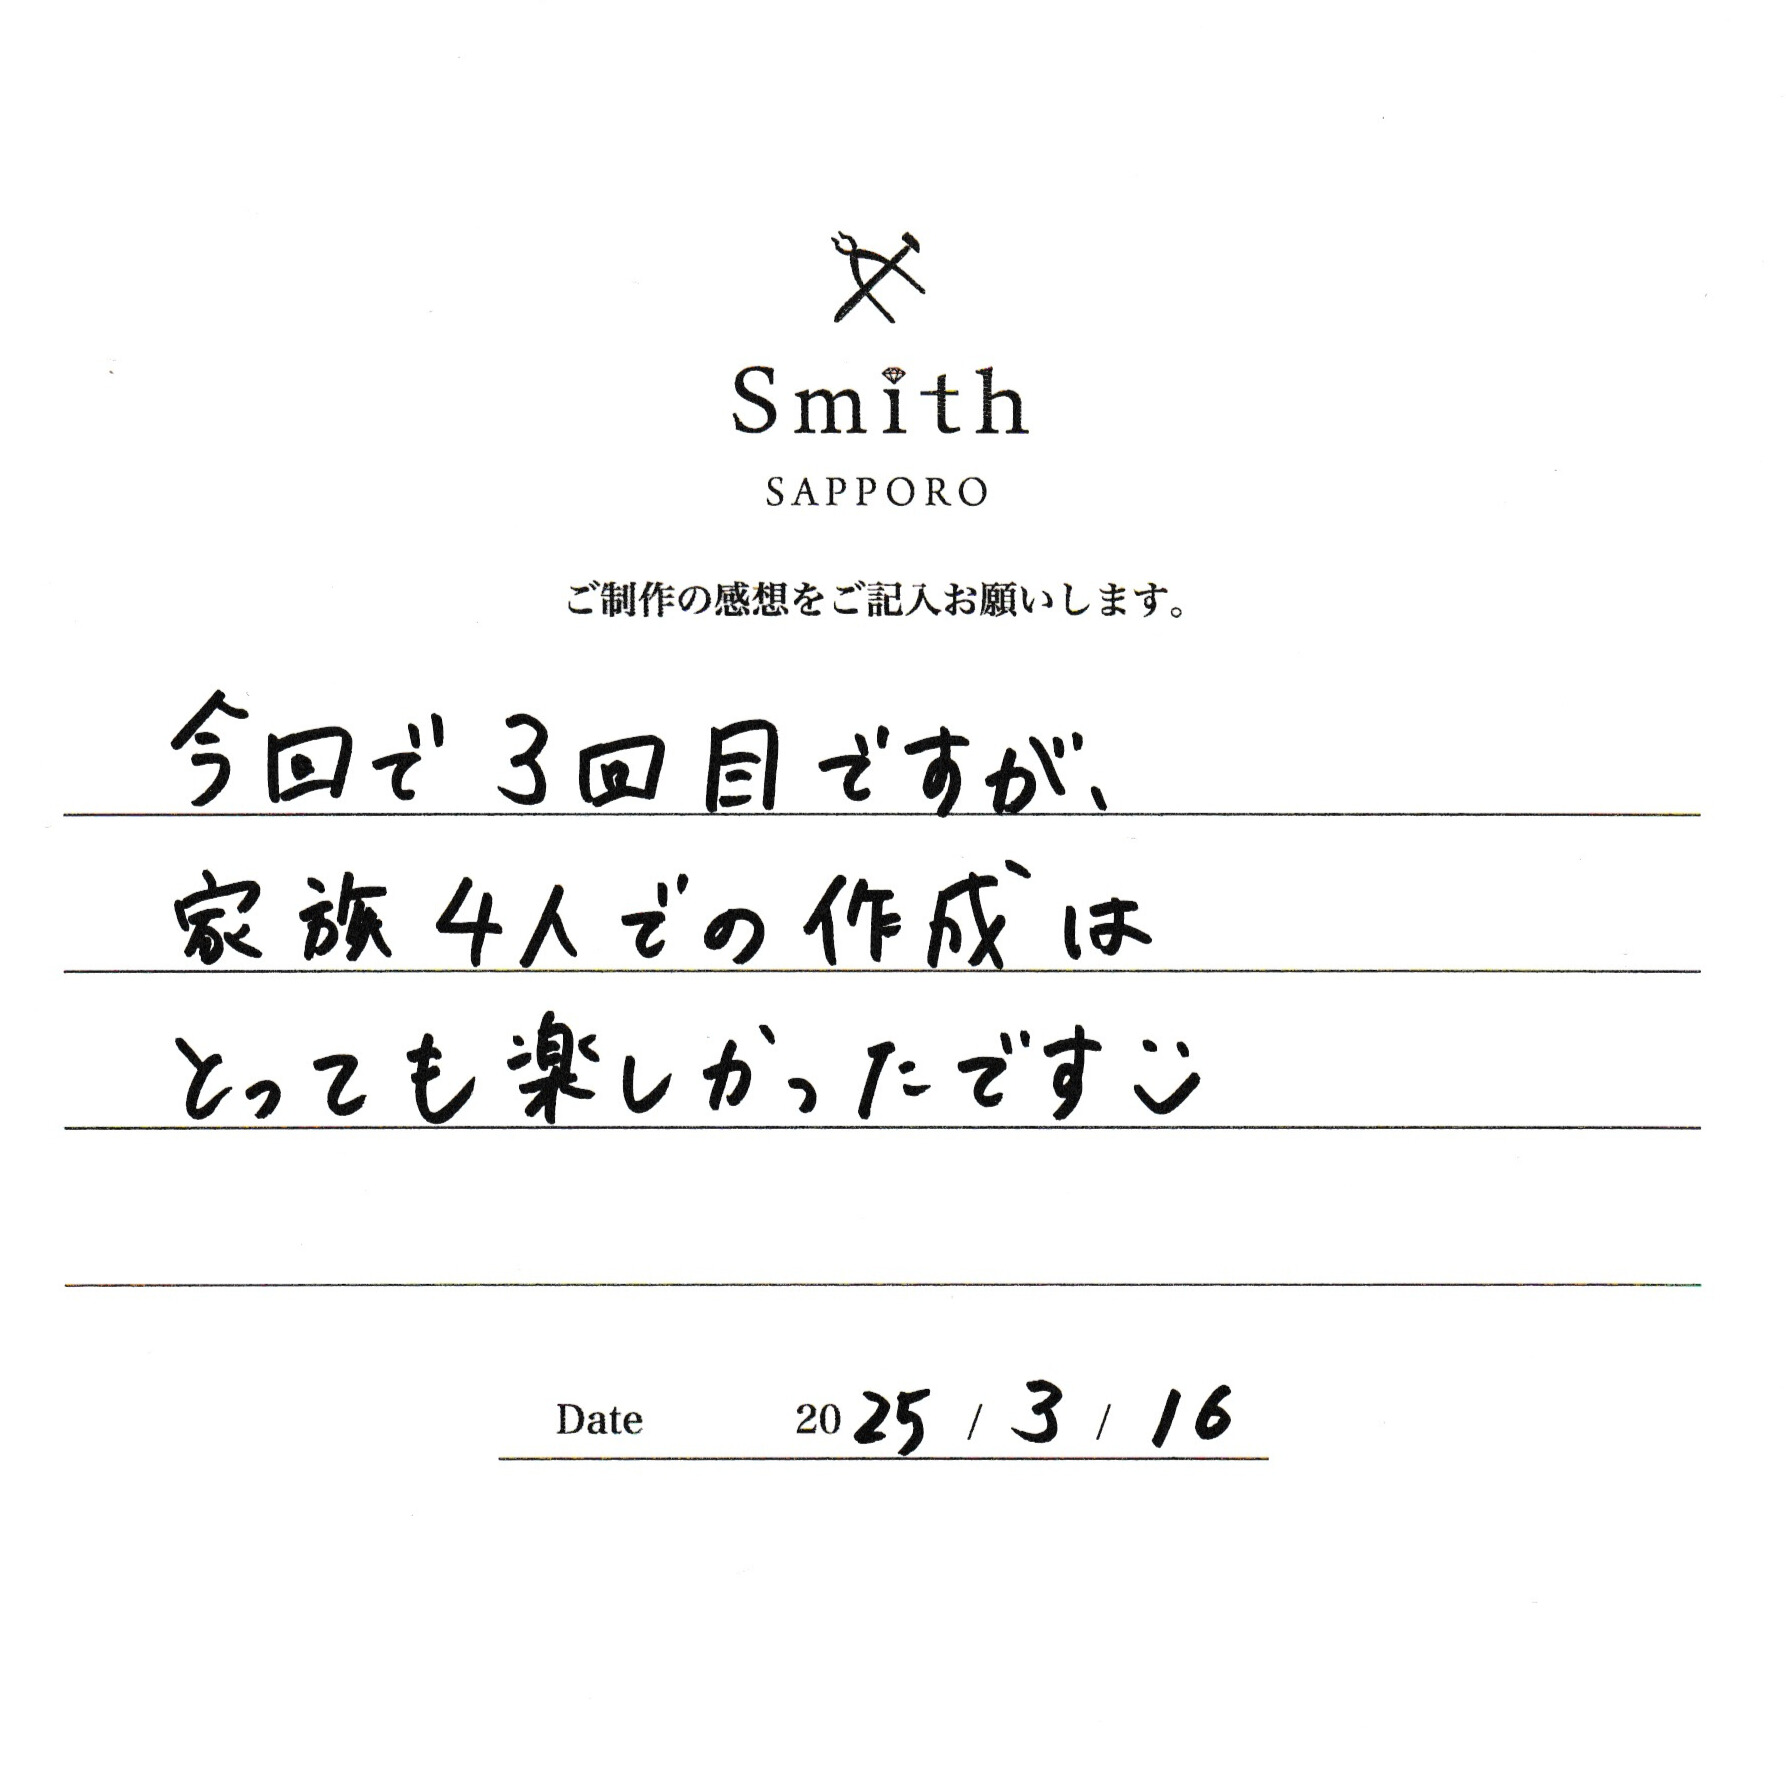 Smith
SAPPORO
ご制作の感想をご記入お願いします。
今回で3回目ですが、
家族4人での作成は
とっても楽しかったです
Date 2025 / 3 / 16